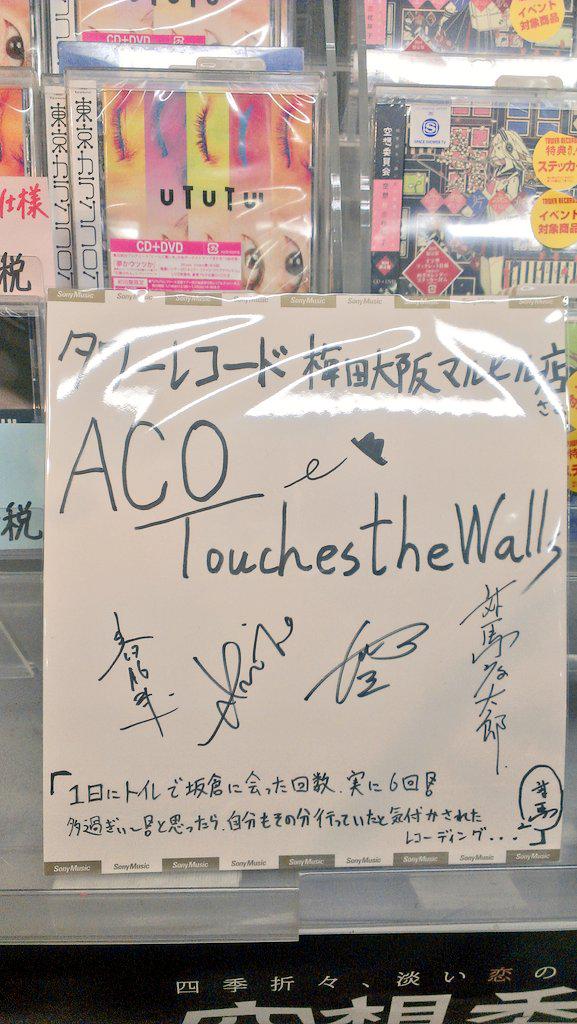 CD+DVD
イベント
対象商品
東京カランコロン
東京カランコロン
UTUTU
CD+DVD
夢かウツツか
空想委員会
SPACE SHOWER TV
TOWER RECORDS
特典
ステッカー
イベント
対象商品
仕様
税
税
SonyMusic SonyMusic SonyMusic SonyMusic SonyMusic
タワーレコード 梅田大阪マルビル店さま
ACO
Touches the Walls
対馬祥太郎
「1日にトイレで坂倉に会った回数、実に6回!!
多過ぎぃ〜!!と思ったら、自分もその分行っていたと気付かされた
レコーディング...」
対馬
SonyMusic SonyMusic SonyMusic SonyMusic SonyMusic
四季折々、淡い恋の
空想委